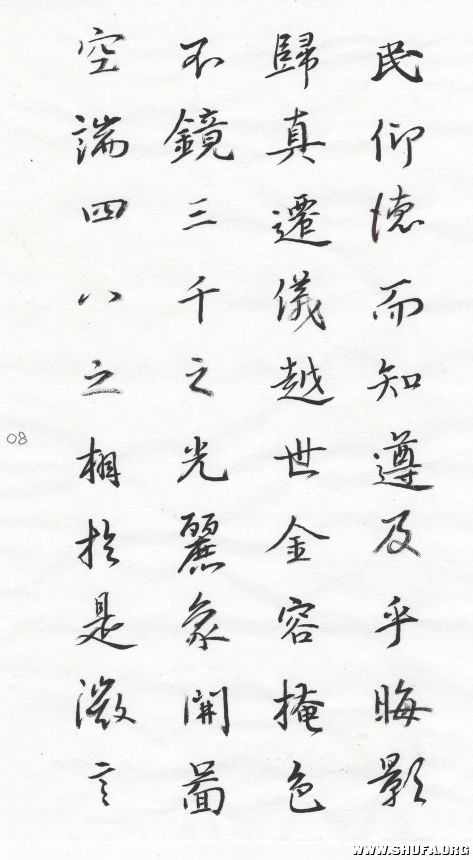 民仰德而知遵及乎晦影
歸真遷儀越世金容掩色
不鏡三千之光麗象開圖
空端四八之相於是微言
08
WWW.SHUFA.ORG